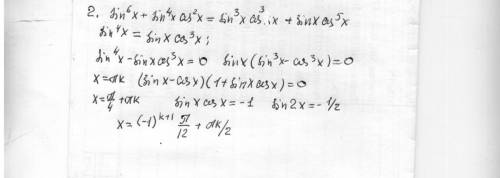 2. sin⁶x + sin⁴x cos²x = sin³x cos³x + sinx cos⁵x
sin⁴x = sinx cos³x;
sin⁴x - sinx cos³x = 0 sinx (sin³x - cos³x) = 0
x = πk (sinx - cosx)(1 + sinx cosx) = 0
x = π/4 + πk sinx cosx = -1 sin2x = -1/2
x = (-1)^(k+1) π/12 + πk/2